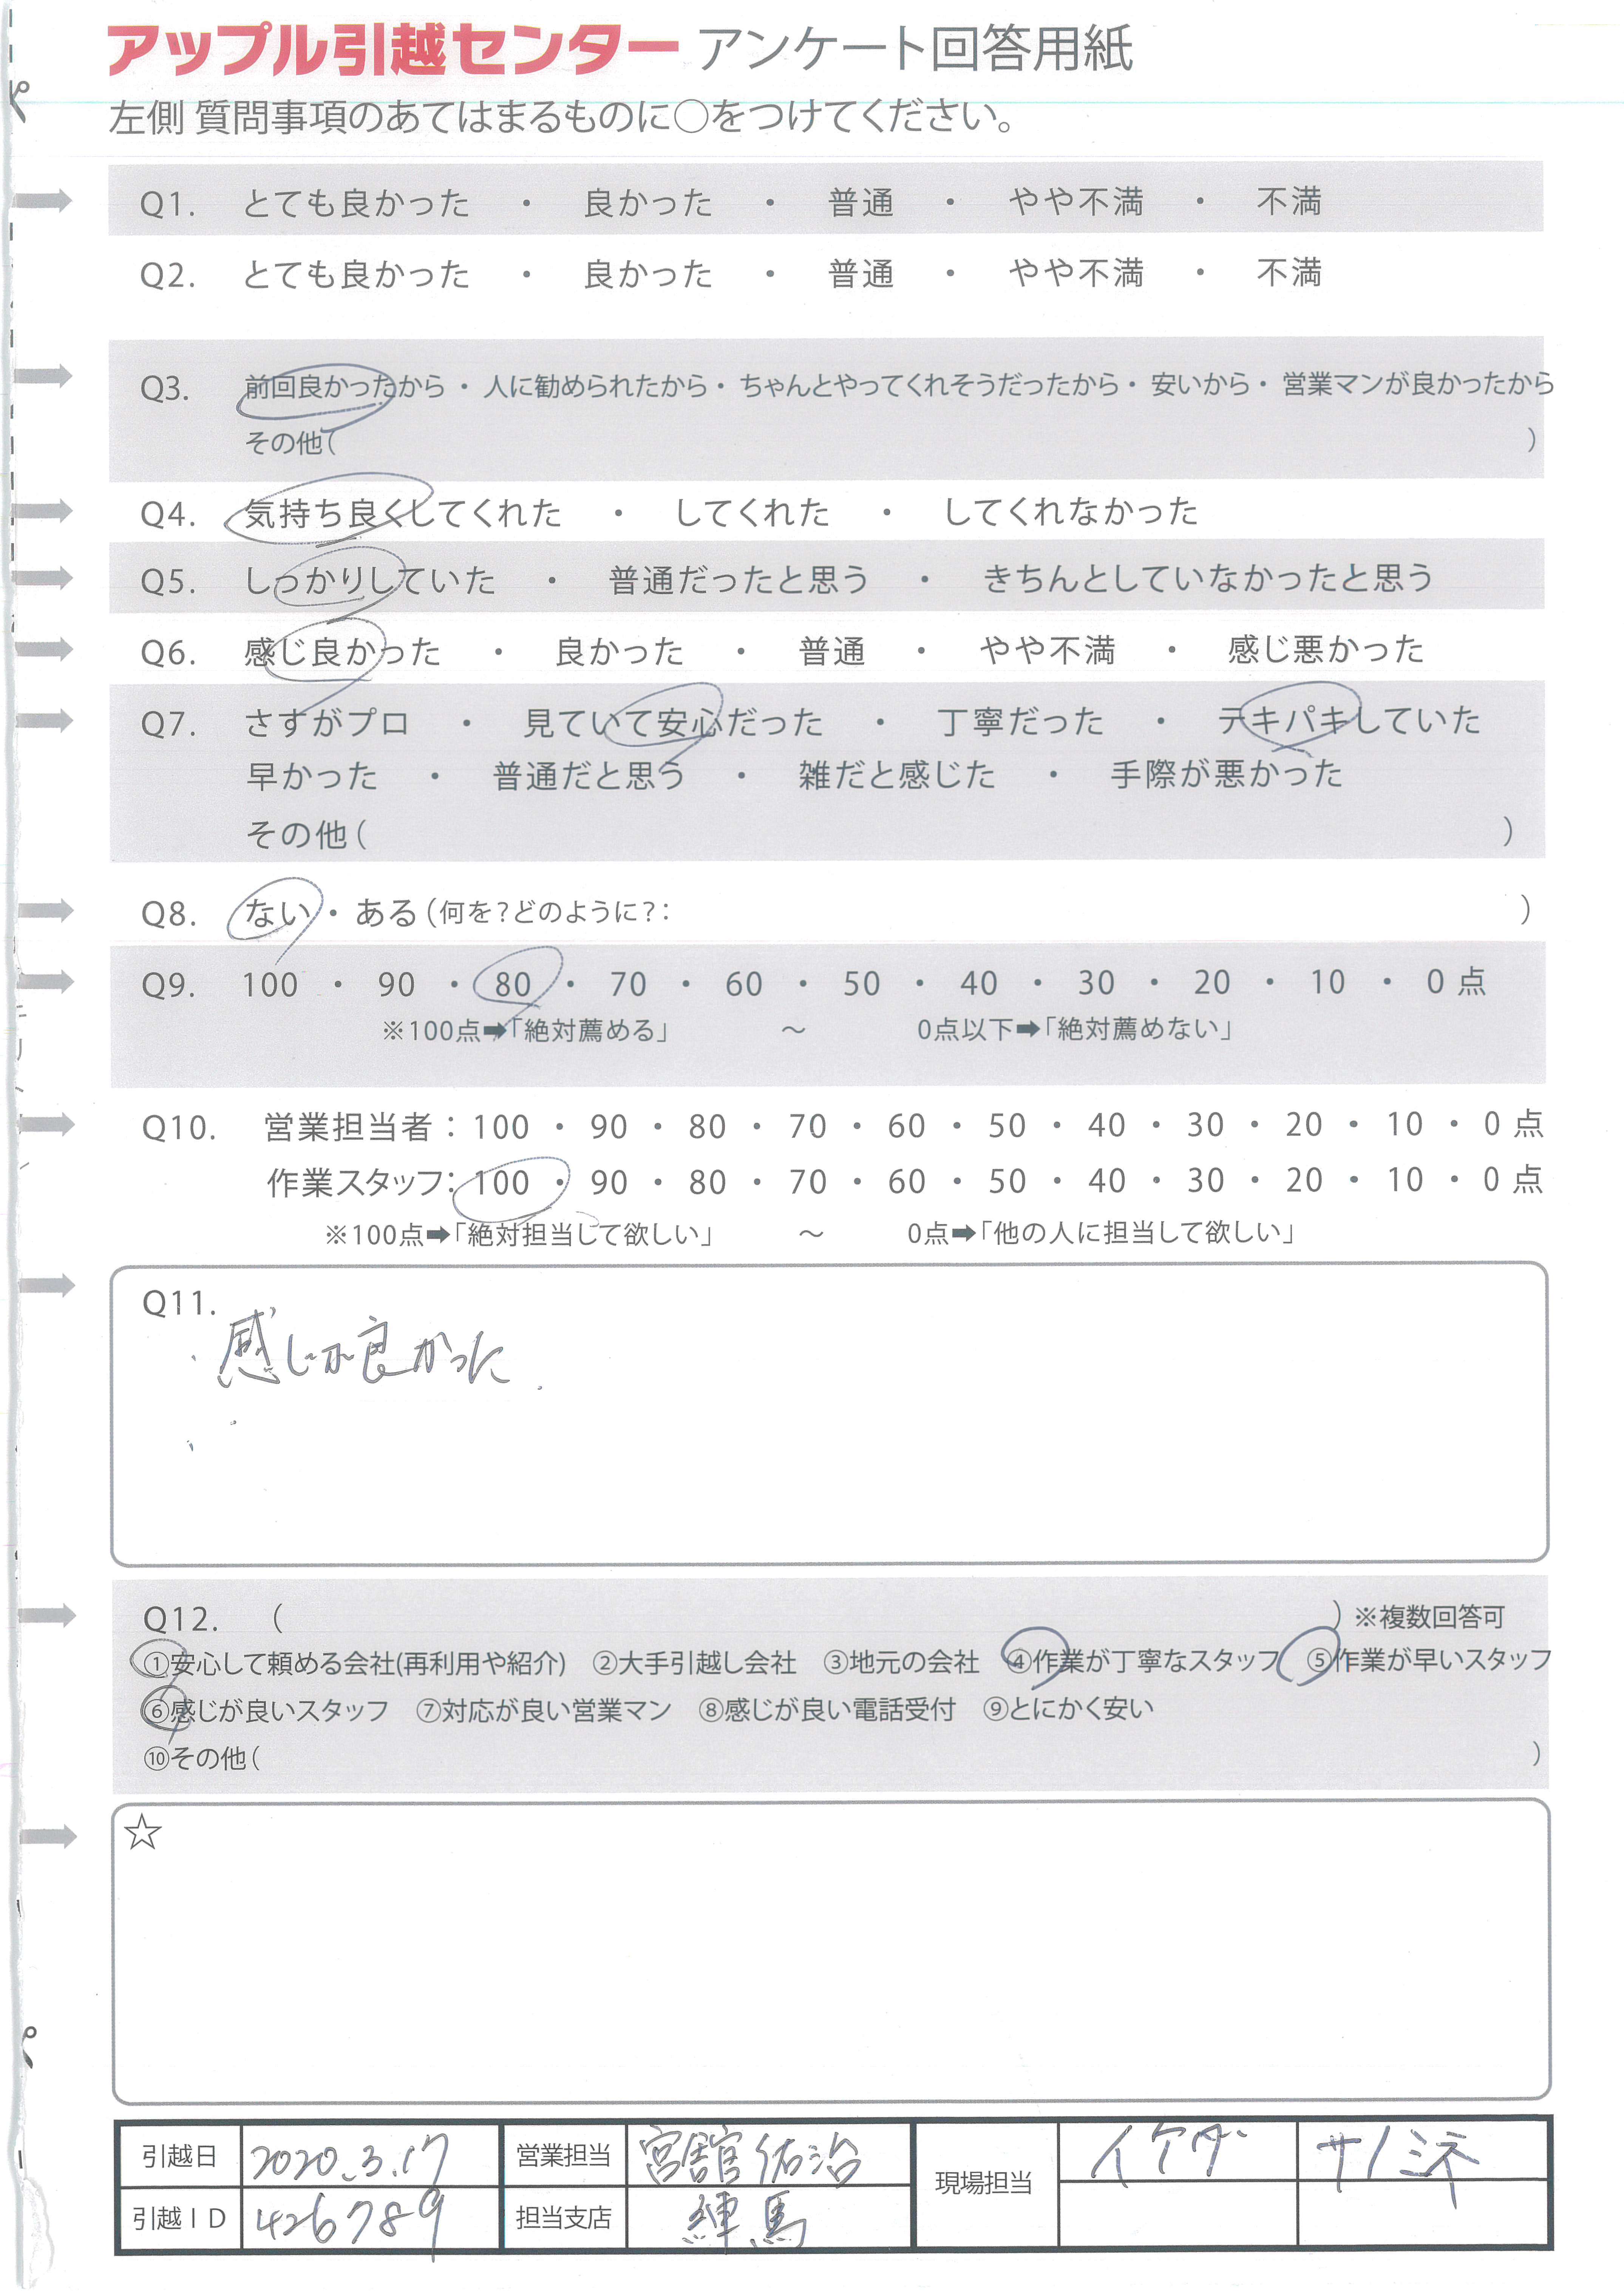 アップル引越センター アンケート回答用紙
左側 質問事項のあてはまるものに○をつけてください。
Q1. とても良かった ・ 良かった ・ 普通 ・ やや不満 ・ 不満
Q2. とても良かった ・ 良かった ・ 普通 ・ やや不満 ・ 不満
Q3. 前回良かったから ・ 人に勧められたから ・ ちゃんとやってくれそうだったから ・ 安いから ・ 営業マンが良かったから
その他( )
Q4. 気持ち良くしてくれた ・ してくれた ・ してくれなかった
Q5. しっかりしていた ・ 普通だったと思う ・ きちんとしていなかったと思う
Q6. 感じ良かった ・ 良かった ・ 普通 ・ やや不満 ・ 感じ悪かった
Q7. さすがプロ ・ 見ていて安心だった ・ 丁寧だった ・ テキパキしていた
早かった ・ 普通だと思う ・ 雑だと感じた ・ 手際が悪かった
その他( )
Q8. ない ・ ある (何を?どのように?: )
Q9. 100 ・ 90 ・ 80 ・ 70 ・ 60 ・ 50 ・ 40 ・ 30 ・ 20 ・ 10 ・ 0 点
※100点➡「絶対薦める」 ～ 0点以下➡「絶対薦めない」
Q10. 営業担当者: 100 ・ 90 ・ 80 ・ 70 ・ 60 ・ 50 ・ 40 ・ 30 ・ 20 ・ 10 ・ 0 点
作業スタッフ: 100 ・ 90 ・ 80 ・ 70 ・ 60 ・ 50 ・ 40 ・ 30 ・ 20 ・ 10 ・ 0 点
※100点➡「絶対担当して欲しい」 ～ 0点➡「他の人に担当して欲しい」
Q11.
感じが良かった.
Q12. ( ) ※複数回答可
①安心して頼める会社(再利用や紹介) ②大手引越し会社 ③地元の会社 ④作業が丁寧なスタッフ ⑤作業が早いスタッフ
⑥感じが良いスタッフ ⑦対応が良い営業マン ⑧感じが良い電話受付 ⑨とにかく安い
⑩その他( )
☆
引越日 2020.3.17 営業担当 宮舘佑治 現場担当 イケダ サノミネ
引越ID 426789 担当支店 練馬